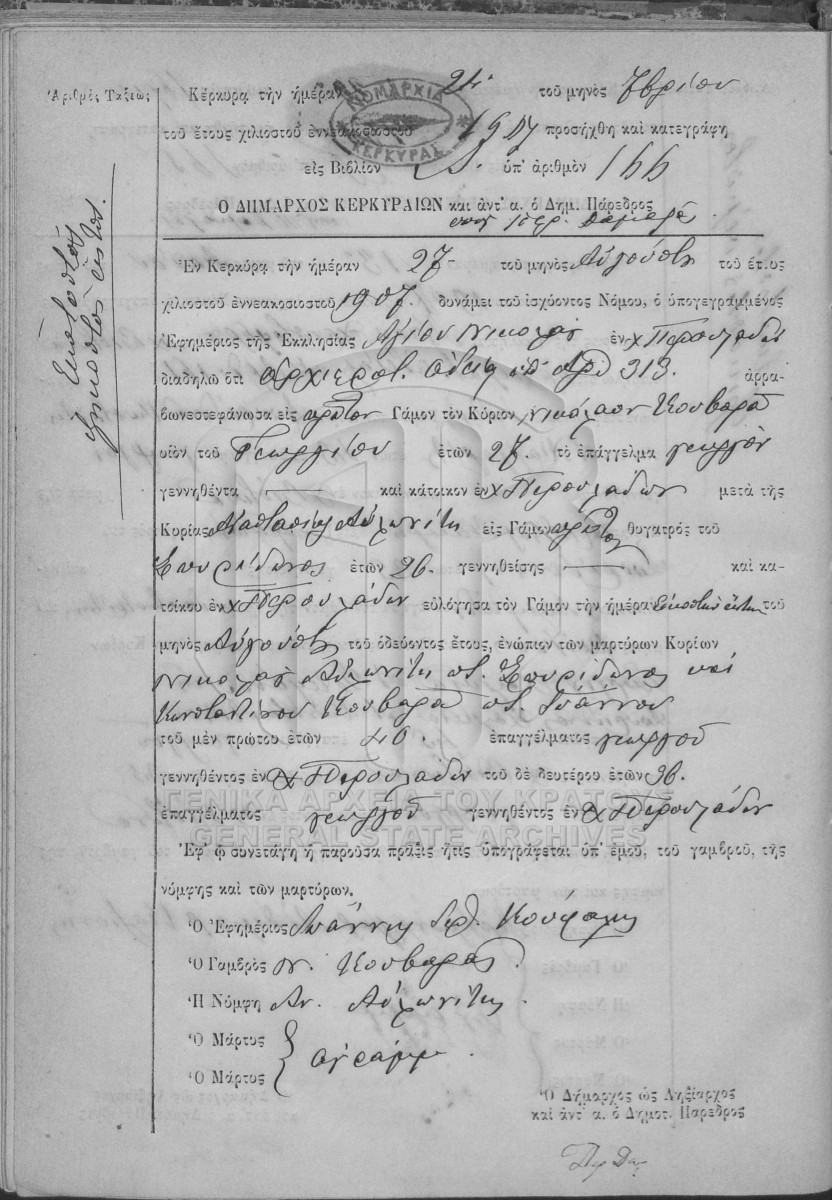 Ἀριθμὸς Τάξεως
Ἑκατοστὸν
ἑξηκοστὸν ἕκτον.
ΝΟΜΑΡΧΙΑ
ΚΕΡΚΥΡΑΣ
Κέρκυρα τὴν ἡμέραν 24 τοῦ μηνὸς 7βρίου
τοῦ ἔτους χιλιοστοῦ ἐννεακοσιοστοῦ 1907 προσήχθη καὶ κατεγράφη
εἰς Βιβλίον ὑπ' ἀριθμὸν 166
Ο ΔΗΜΑΡΧΟΣ ΚΕΡΚΥΡΑΙΩΝ καὶ ἀντ' α. ὁ Δημ. Πάρεδρος
Ἐν Κερκύρᾳ τὴν ἡμέραν 27 τοῦ μηνὸς Αὐγούστου τοῦ ἔτους
χιλιοστοῦ ἐννεακοσιοστοῦ 1907. δυνάμει τοῦ ἰσχύοντος Νόμου, ὁ ὑπογεγραμμένος
Ἐφημέριος τῆς Ἐκκλησίας Ἁγίου Νικολάου ἐν χ Περουλάδων
διαδηλῶ ὅτι ἀρχιερατ. ἀδείᾳ ὑπ' ἀρ 313. ἀρρα-
βωνεστεφάνωσα εἰς πρῶτον Γάμον τὸν Κύριον Νικόλαον Κουβαρᾶ
υἱὸν τοῦ Γεωργίου ἐτῶν 27. τὸ ἐπάγγελμα γεωργὸν
γεννηθέντα — καὶ κάτοικον ἐν χ Περουλάδων μετὰ τῆς
Κυρίας Ἀναστασίας Αὐλωνίτη εἰς Γάμον πρῶτον θυγατρὸς τοῦ
Σπυρίδωνος ἐτῶν 26. γεννηθείσης — καὶ κα-
τοίκου ἐν χ Περουλάδων εὐλόγησα τὸν Γάμον τὴν ἡμέραν εἰκοστὴν ἕκτην τοῦ
μηνὸς Αὐγούστου τοῦ ὁδεύοντος ἔτους, ἐνώπιον τῶν μαρτύρων Κυρίων
Νικολάου Αὐλωνίτη π. Σπυρίδωνος καὶ
Κωνσταντίνου Κουβαρᾶ π. Ἰωάννου
τοῦ μὲν πρώτου ἐτῶν 40. ἐπαγγέλματος γεωργοῦ
γεννηθέντος ἐν χ Περουλάδων τοῦ δὲ δευτέρου ἐτῶν 36.
ΓΕΝΙΚΑ ΑΡΧΕΙΑ ΤΟΥ ΚΡΑΤΟΥΣ
ἐπαγγέλματος γεωργοῦ γεννηθέντος ἐν χ Περουλάδων
GENERAL STATE ARCHIVES
Ἐφ' ᾧ συνετάγη ἡ παροῦσα πρᾶξις ἥτις ὑπογράφεται ὑπ' ἐμοῦ, τοῦ γαμβροῦ, τῆς
νύμφης καὶ τῶν μαρτύρων.
Ὁ Ἐφημέριος Ἰωάννης
Ὁ Γαμβρὸς Ν. Κουβαρᾶς.
Ἡ Νύμφη Αν. Αὐλωνίτη.
Ὁ Μάρτυς
ἀγράμμ.
Ὁ Μάρτυς
Ὁ Δήμαρχος ὡς Ληξίαρχος
καὶ ἀντ' α. ὁ Δημοτ. Πάρεδρος